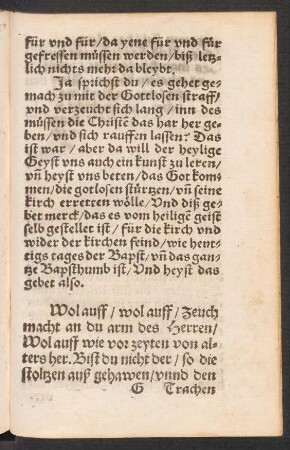 für vnd für/da yene für vnd für
gefressen müssen werden/biß letz
lich nichts mehr da bleybt.
Ja sprichst du/es gehet ge
mach zu mit der Gottlosen straff/
vnd verzeucht sich lang/inn des
müssen die Christē das har her ge
ben/vnd sich rauffen lassen? Das
ist war/aber da will der heylige
Geyst vns auch ein kunst zu leren/
vñ heyst vns beten/das Got kom
men/die gotlosen stürtzen/vñ seine
kirch erretten wölle/Vnd diß ge
bet merck/das es vom heiligē geist
selb gestellet ist/für die kirch vnd
wider der kirchen feind/wie heut
tigs tages der Bapst/vñ das gan
tze Bapsthumb ist/Vnd heyst das
gebet also.
Wol auff/wol auff/Zeuch
macht an du arm des Herren/
Wol auff wie vor zeyten von al
ters her. Bist du nicht der/so die
stoltzen auß gehawen/vnnd den
G Trachen